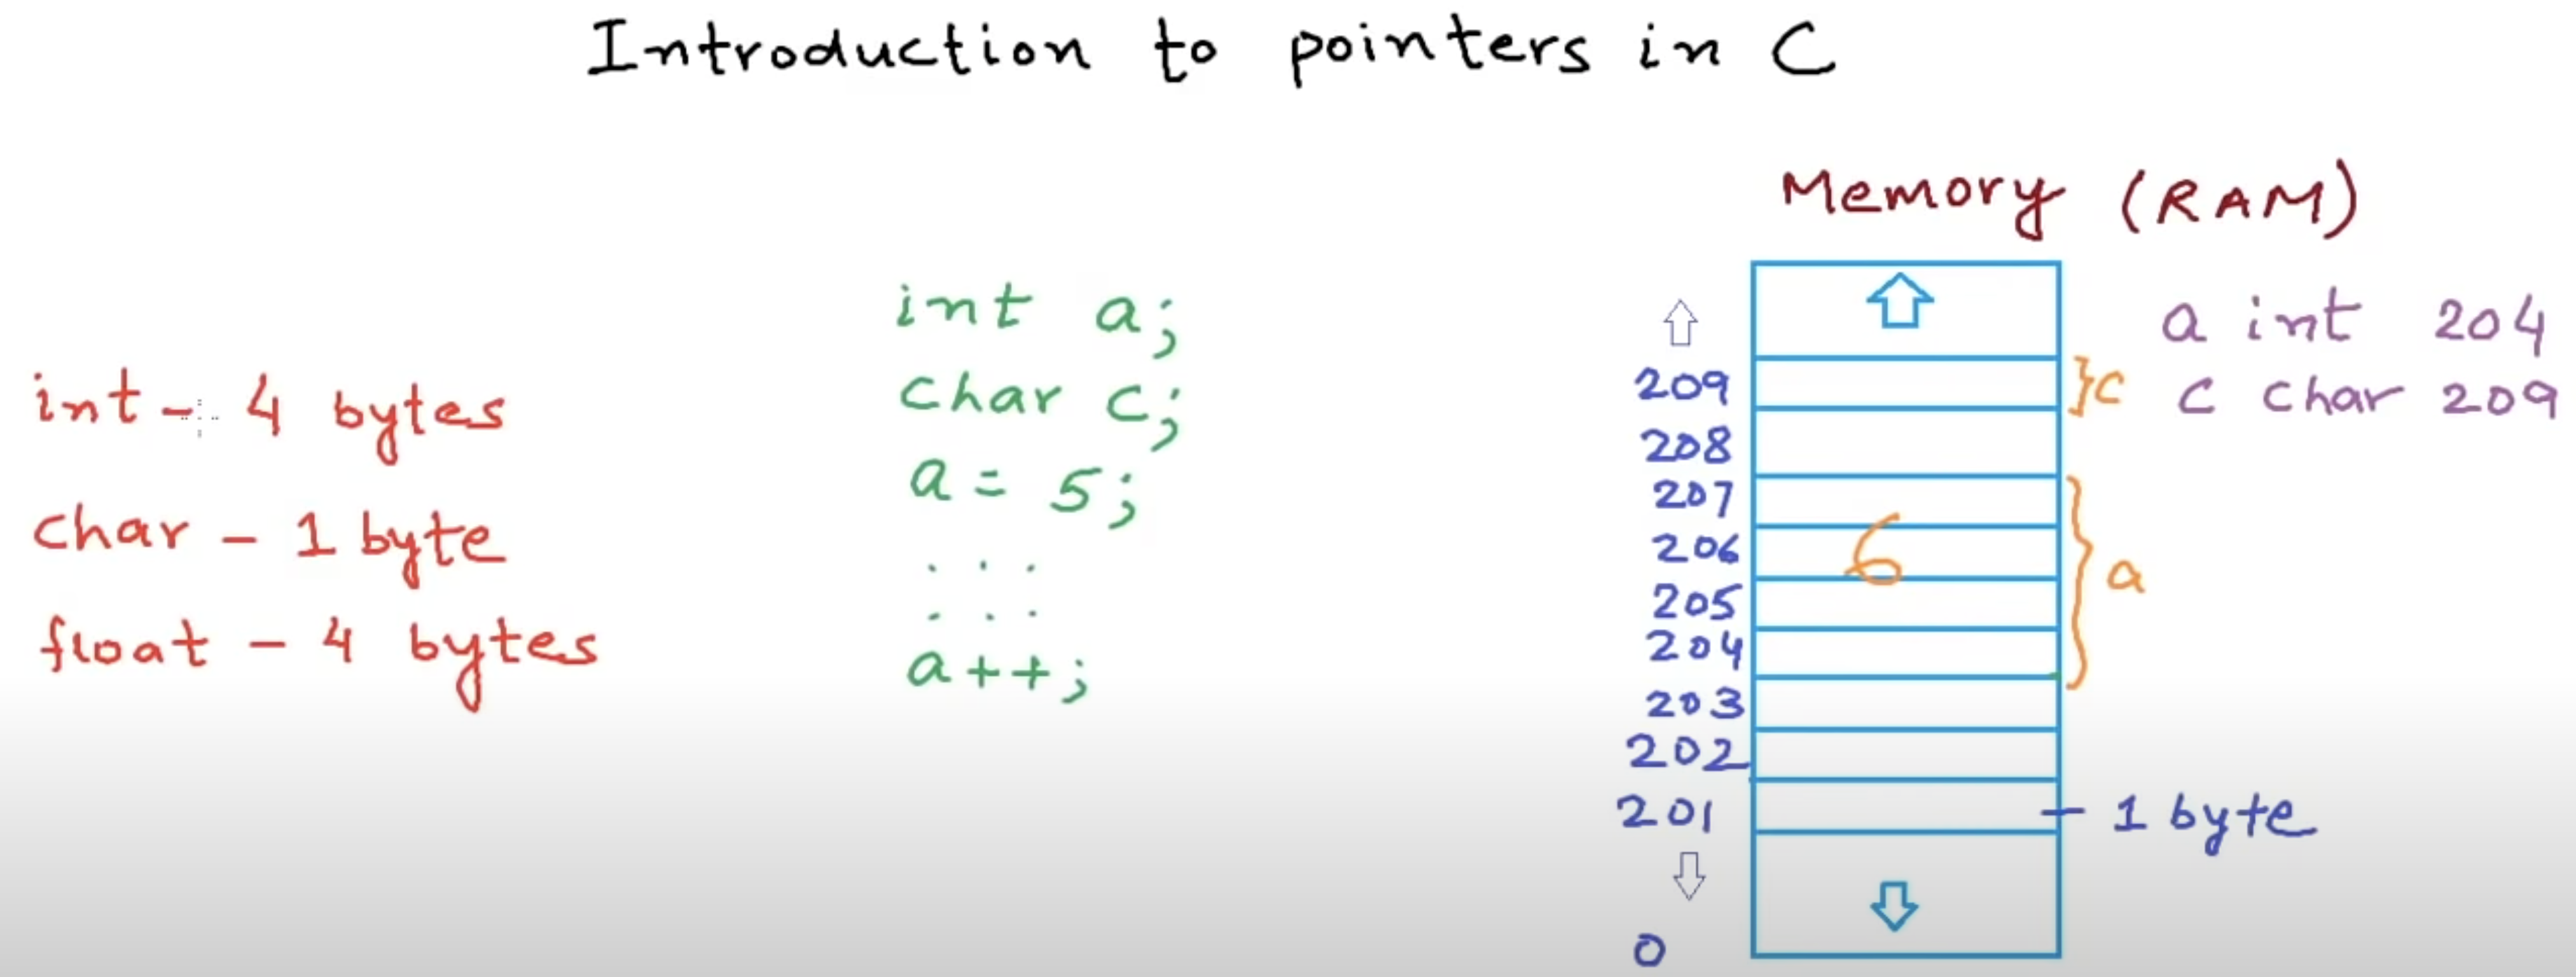 Introduction to pointers in C
int - 4 bytes
char - 1 byte
float - 4 bytes
int a;
char c;
a = 5;
. . .
. . .
a++;
Memory (RAM)
209
208
207
206
205
204
203
202
201
0
6
}c
} a
- 1 byte
a int 204
c char 209